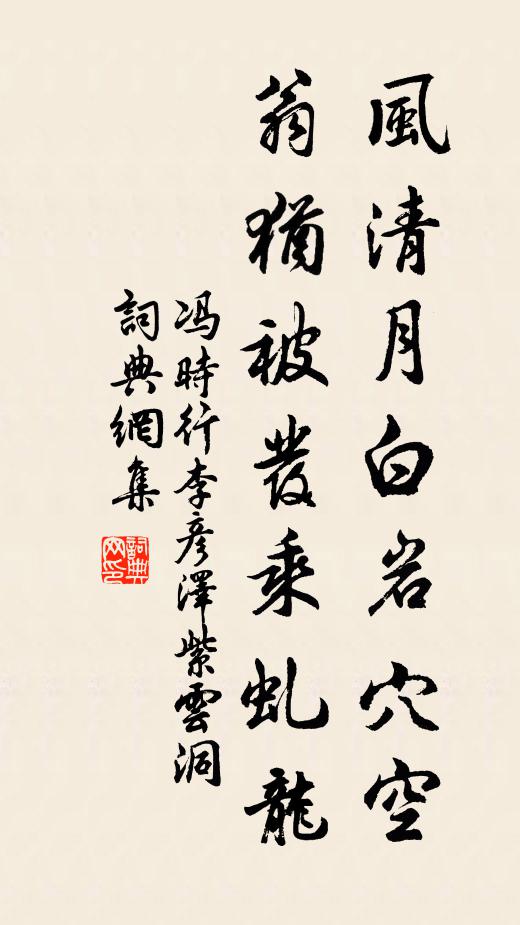 風清月白岩穴空
翁猶被發乘虬龍
冯時行李彦澤紫雲洞
詞典網集
詞典网印